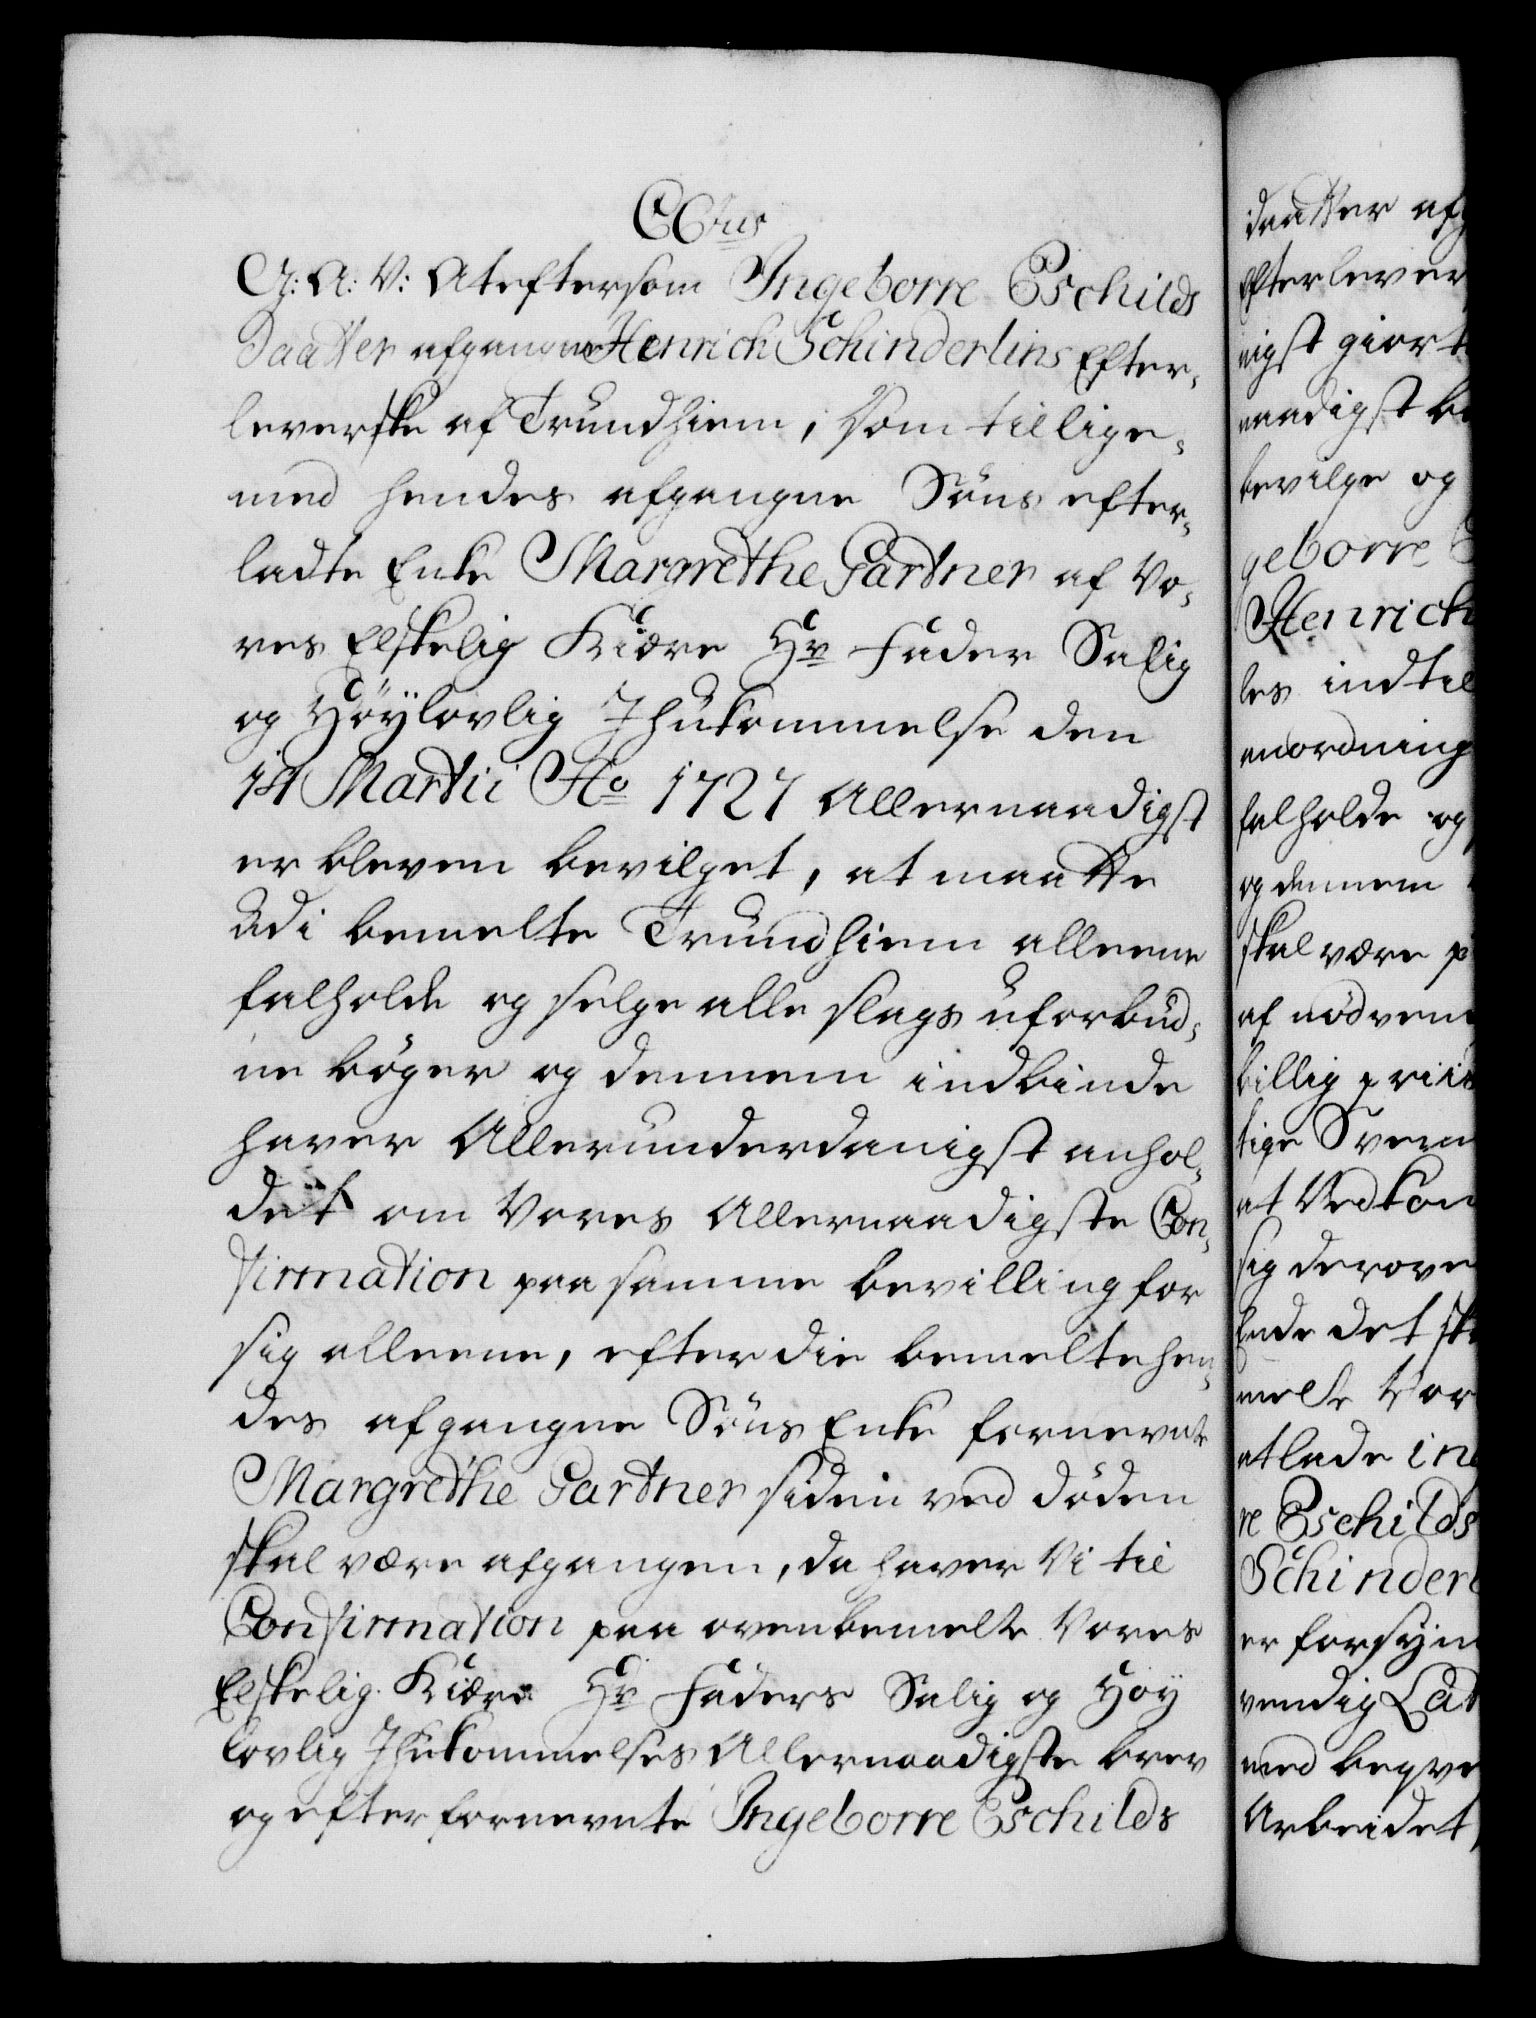 CC6tus
G: A: V: At eftersom Ingeborre Eschilds
Daatter afgangne Henrich Schinderlins Efter-
leverske af Trundhiem, som tillige-
med hendes afgangne Søns efter-
ladte Enke Margrethe Gartner af Vo-
res Elskelig Kiære Hr Fader Salig
og Høylovlig Ihukommelse den
14 Martii Ao 1727 Allernaadigst
er bleven bevilget, at maatte
udi bemelte Trundhiem alleene
falholde og selge alle slags uforbud-
ne bøger og dennem indbinde
haver Allerunderdanigst anhol-
det om Vores Allernaadigste Con-
firmation paa samme bevilling for
sig alleene, efterdie bemelte hen-
des afgangne Søns Enke fornevnte
Margrethe Gartner siden ved døden
skal være afgangen, da haver Vi til
Confirmation paa ovenbemelte Vores
Elskelig Kiære Hr Faders Salig og Høy
lovlig Ihukommelses Allernaadigste brev
og efter fornevnte Ingeborre Eschilds
daatter afg
Efterlever
nigst giort
naadigst be
bevilge og
geborre E
Henrich
les indtil
anordning
falholde og
og dennem
skal være p
af nødven
billig priis
tige Svenn
at Vedkom
sig derove
Ende det ska
melte Vor
at lade ind
re Eschilds
Schinderl
er forsÿn
vendig Lad
med beqve
Arbeidet,